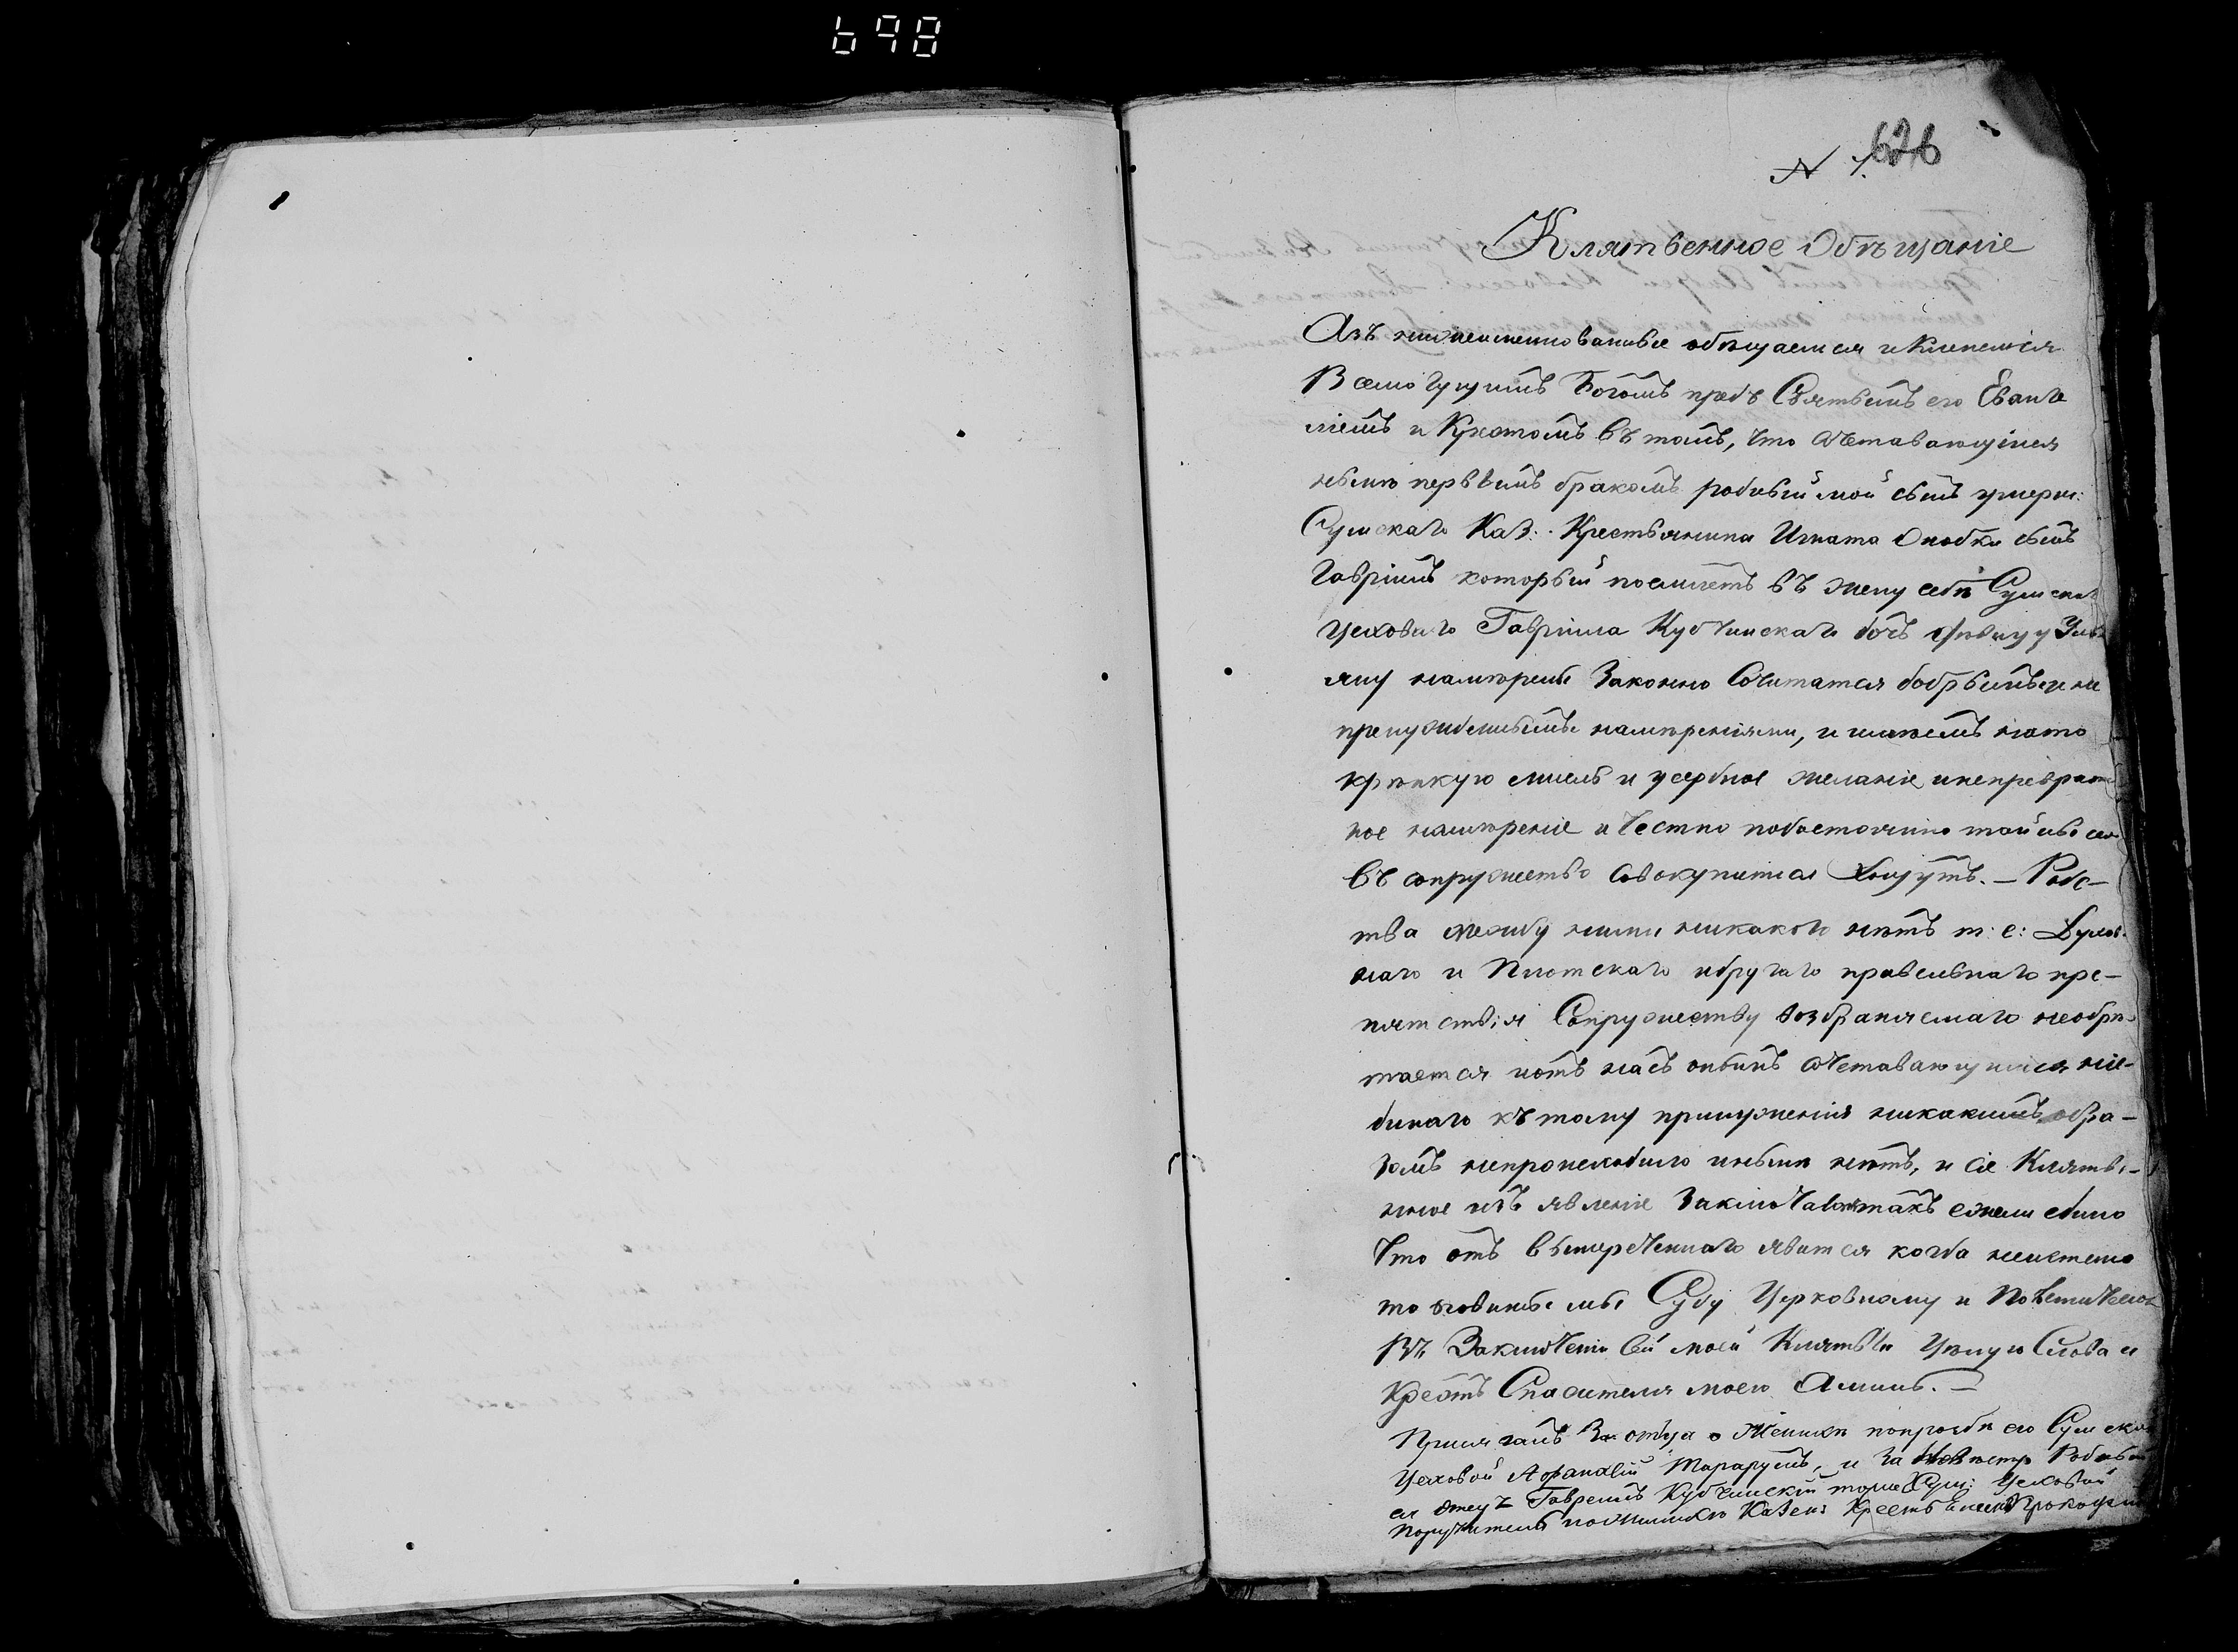 698
626
N 1.
Клятвенное Обѣщаніе
Азъ нижеименнованные обѣщаемся и Клянемся
Всемогущимъ Богомъ предъ Святымъ его Еванге
ліемъ и Крестомъ въ томъ, что сочетавающійся
нынѣ первымъ бракомъ родный мой сынъ умерш:
Сумскаго Каз: Крестьянина Игната сынъ
Гавріилъ который поемлетъ въ жену себѣ Сумскаго
цеховаго Гавріила Кубчинскаго дочь дѣвицу
намѣрены Законно Сочитатся добрымъ и не
принужденнымъ намѣреніями, и имѣемъ на то
крѣпкую мысль и усердное желаніе и непреврат
ное намѣреніе и Честно подостоянію тайны сея
въ сопружество Совокупится Хощутъ. — Родс-
тва между ними никакого нѣтъ т: е: Духов-
наго и Плотскаго и другаго правельнаго пре-
пятствія Сопружеству возбраняемаго необрѣ-
тается и отъ насъ онымъ сочетавающимся ніе-
динаго къ тому принужденія никакимъ обра-
зомъ непроисходило и нынѣ нѣтъ, и сіе Клятве-
нное изъявленіе Заключаю такъ ежели едино
Что отъ вышереченнаго явится когда неистено
то повинны мы Суду Церковному и
Въ Заключеніи Сей моей Клятвы Цѣлую Слова и
Крестъ Спасителя моего Аминь. —
Присягалъ За отца о Женихѣ попрозбѣ его Сумской
Цеховой Афанасій Тарарунъ, и за Невѣсту Родный
ея Отецъ Гавреилъ Кубчинскій тоже Сум: Цеховой
Поручитель по Женихѣ Казен: Крестьянинъ Прокофій